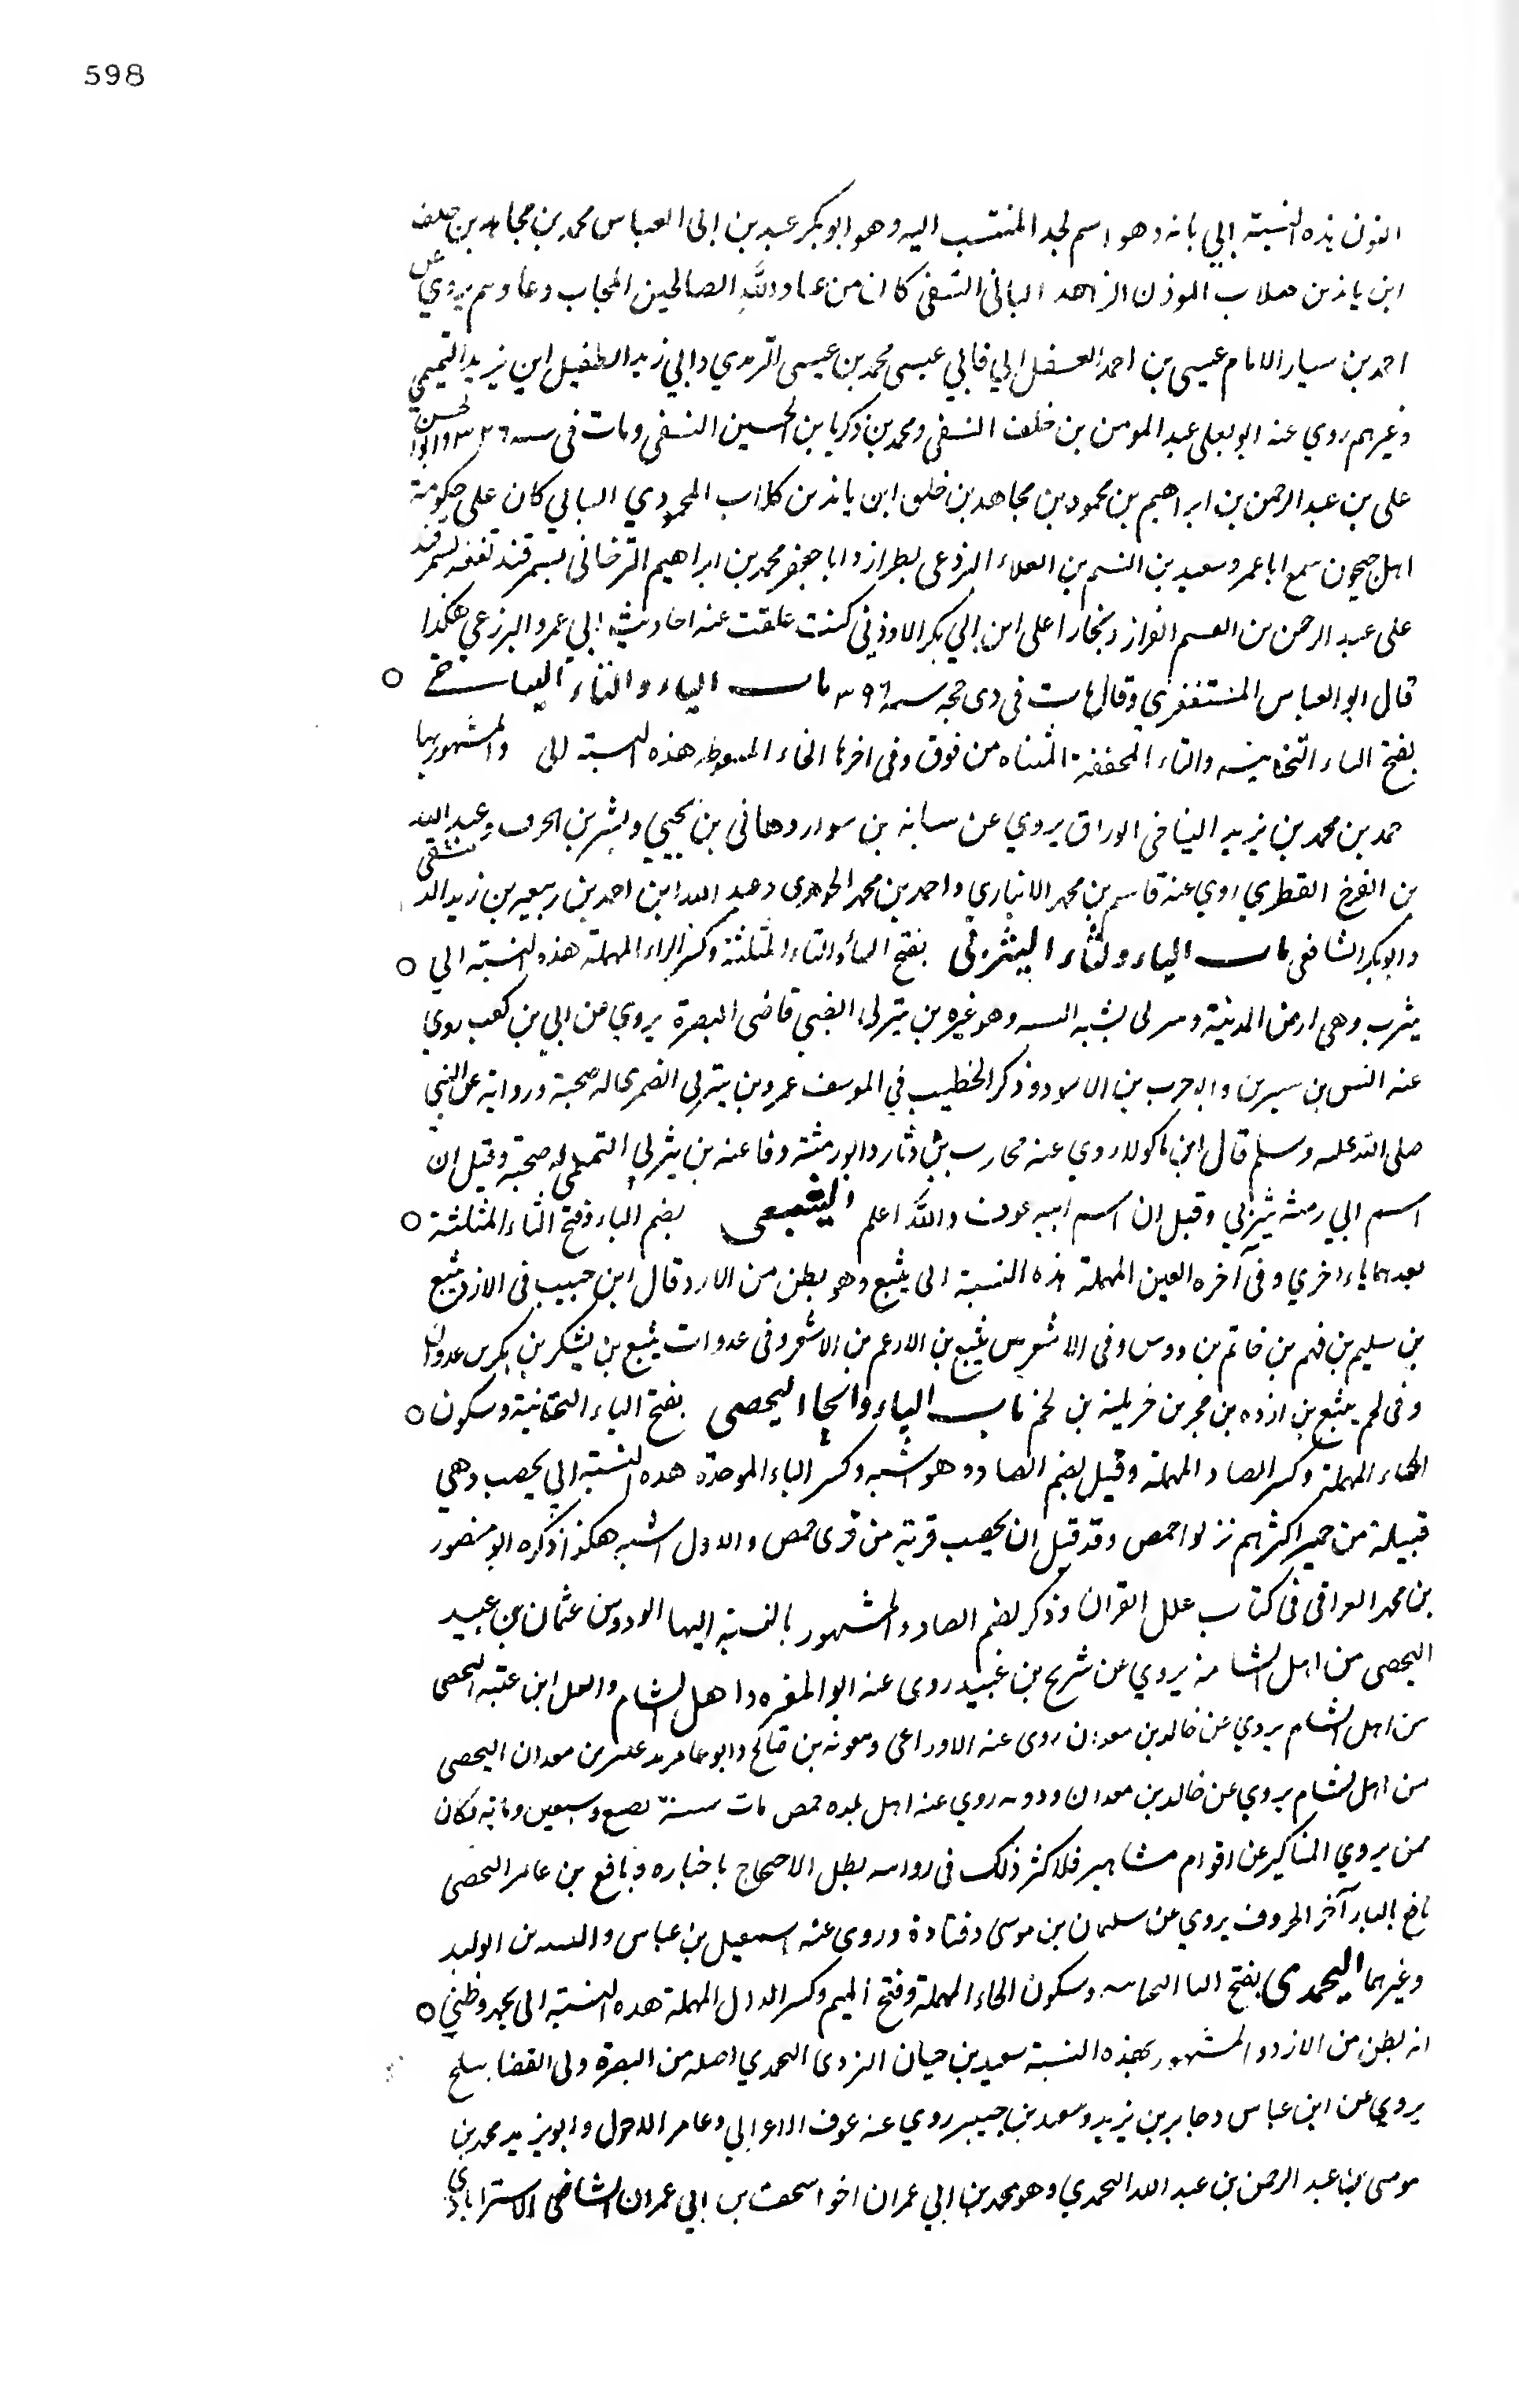 598
النون هذه النسبة الي يانه وهو اسم لجد المنتسب اليه وهو ابو بكر عبد بن ابى العباس محمد بن مجاهد بن خلف
ابن يانذ بن كلاب الموذن الزاهد اليانى النسفى كان من عباد الله الصالحين المجاب دعاوهم يروي عن
احمد بن سيار الامام عيسى بن احمد العسقلاني وابي عيسى محمد بن عيسى الترمذي وابي زيد الطفيل ابن زيد التميمي
وغيرهم روي عنه ابو يعلى عبد المومن بن خلف النسفى ومحمد بن زكريا بن الحسين النسفى ومات فى سنه ٣٢٦ وابو الحسن
على بن عبد الرحمن بن ابراهيم بن محمود بن مجاهد بن خلف ابن يانذ بن كلاب المحمودي اليانى كان على حكومة
اهل جيحون سمع ابا عمرو سعيد بن القسم بن العلاء البرذعى بطراز وابا جعفر محمد بن ابراهيم الفرخانى بسمرقند تفقه بسمرقند
على عبد الرحمن بن القسم القزاز وبخارا على ابن ابي بكر الاودنى كنت علقت عنه احاديث ابي عمرو البرذعي هكذا
قال ابو العباس المستغفري وقال مات فى ذى حجه سنة ٣٩٦ باب الياء والتاء الياتخى
بفتح الياء التحتانيه والتاء المخففة المثناه من فوق وفى اخرها الخاء المنقوطه هذه النسبة الى والمشهور بها
حمد بن محمد بن يزيد الياتخى الوراق يروي عن سبابه بن سوار وهانى بن يحيي وبشر بن الحرث وعبد الله
بن الفرج القطري روي عنه قاسم بن محمد الانباري واحمد بن محمد الجوهرى وعبد الله ابن احمد بن ربيعه بن زيد الدمشقى
وابو بكر الشافعى باب الياء والثاء اليثربى بفتح الياء والثاء المثلثة وكسر الراء المهملة هذه النسبة الي
يثرب وهى ارض المدينة ويثربى يشبه النسبه وهو عميره بن يثربى الضبي قاضى البصرة يروي عن ابي بن كعب روي
عنه انس بن سيرين وابو حرب بن الاسود وذكر الخطيب في الموتنف عمرو بن يثربى الضمرى له صحبة ورواية عن النبي
صلى الله عليه وسلم قال ابن ماكولا روي عنه محارب بن دثار وابو رمثة رفاعه بن يثربي التميمى له صحبة وقيل ان
اسم ابي رمثه يثربي وقيل ان اسم ابيه عوف والله اعلم اليثيعى بضم الياء وفتح الثاء المثلثة
بعدهما ياء اخري وفى آخره العين المهملة هذه النسبة الى يثيع وهو بطن من الازد قال ابن حبيب فى الازد يثيع
بن سليم بن فهم بن غانم بن دوس وفى الاشعرين يثيع بن الارعم بن الاشعر وفى عدوان يثيع بن يشكر بن بكر بن عدوان
وفى لخم يثيع بن اردة بن حجر بن خزيلة بن لخم باب الياء والحاء اليحصبى بفتح الياء التحتانية وسكون
الحاء المهملة وكسر الصاد المهملة وقيل بضم الصاد وهو اشبه وكسر الباء الموحدة هذه النسبة الي يحصب وهي
قبيلة من حمير اكثرهم نزلوا حمص وقد قيل ان يحصب قرية من قرى حمص والاول اشبه هكذا ذكره ابو منصور
بن محمد العراقى فى كتاب علل القران وذكر بضم الصاد والمشهور بالنسبة اليها ابو دوس عثمان بن عبيد
اليحصبى من اهل الشام يروي عن شريح بن عبيد روى عنه ابو المغيره واهل الشام والعلا ابن عتبه اليحصبى
من اهل الشام يروي عن خالد بن معدان روى عنه الاوزاعى ومعويه بن صالح وابو عامر عفير بن معدان اليحصبى
من اهل الشام يروي عن خالد بن معدان وذويه روي عنه اهل بلده حمص مات سنة بضع وسبعين ومائة وكان
ممن يروي المناكير عن اقوام مشاهير فلا كثر ذلك فى روايته بطل الاحتجاج باخباره ونافع بن عامر اليحصبى
بالياء آخر الحروف يروي عن سليمان بن موسى وقتادة وروى عنه اسمعيل بن عياش وبقيه بن الوليد
وغيرهما اليحمدى بفتح اليا التحتانيه وسكون الحاء المهملة وفتح الميم وكسر الدال المهملة هذه النسبة الى يحمد وظني
انه بطن من الازد والمشهور بهذه النسبة سعيد بن حيان الازدى اليحمدي اصله من البصرة ولى القضا ببلخ
يروي عن ابن عباس وجابر بن يزيد وسعيد بن جبير روي عنه عوف الاعرابي وعامر الاحول وابو يزيد محمد بن
موسى بن عبد الرحمن بن عبد الله اليحمدي وهو محمد بن ابي عمران اخو اسحق بن ابي عمران الشافعى الاسترابادي